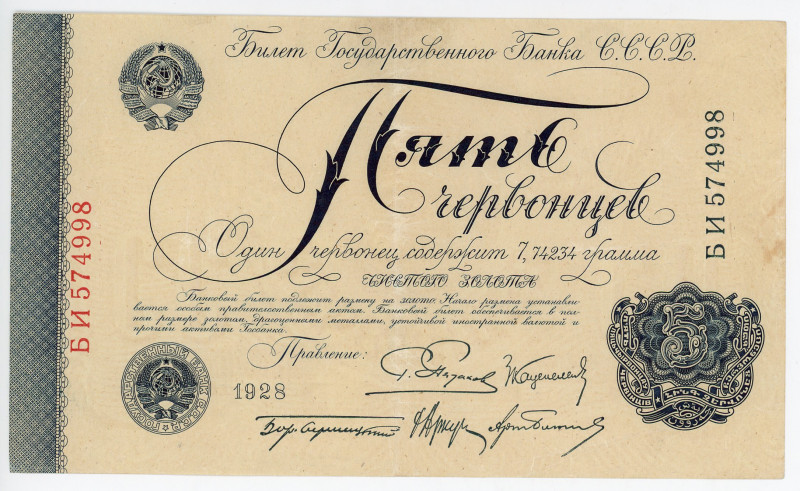 Билет Государственного Банка С.С.С.Р.
Пять
червонцев
Один червонец содержит 7,74234 грамма
чистого золота
Банковый билет подлежит размену на золото. Начало размена устанавли-
вается особым правительственным актом. Банковый билет обеспечивается в пол-
ном размере золотом, драгоценными металлами, устойчивой иностранной валютой и
прочими активами Госбанка.
Правление:
1928
БИ 574998
БИ 574998
5